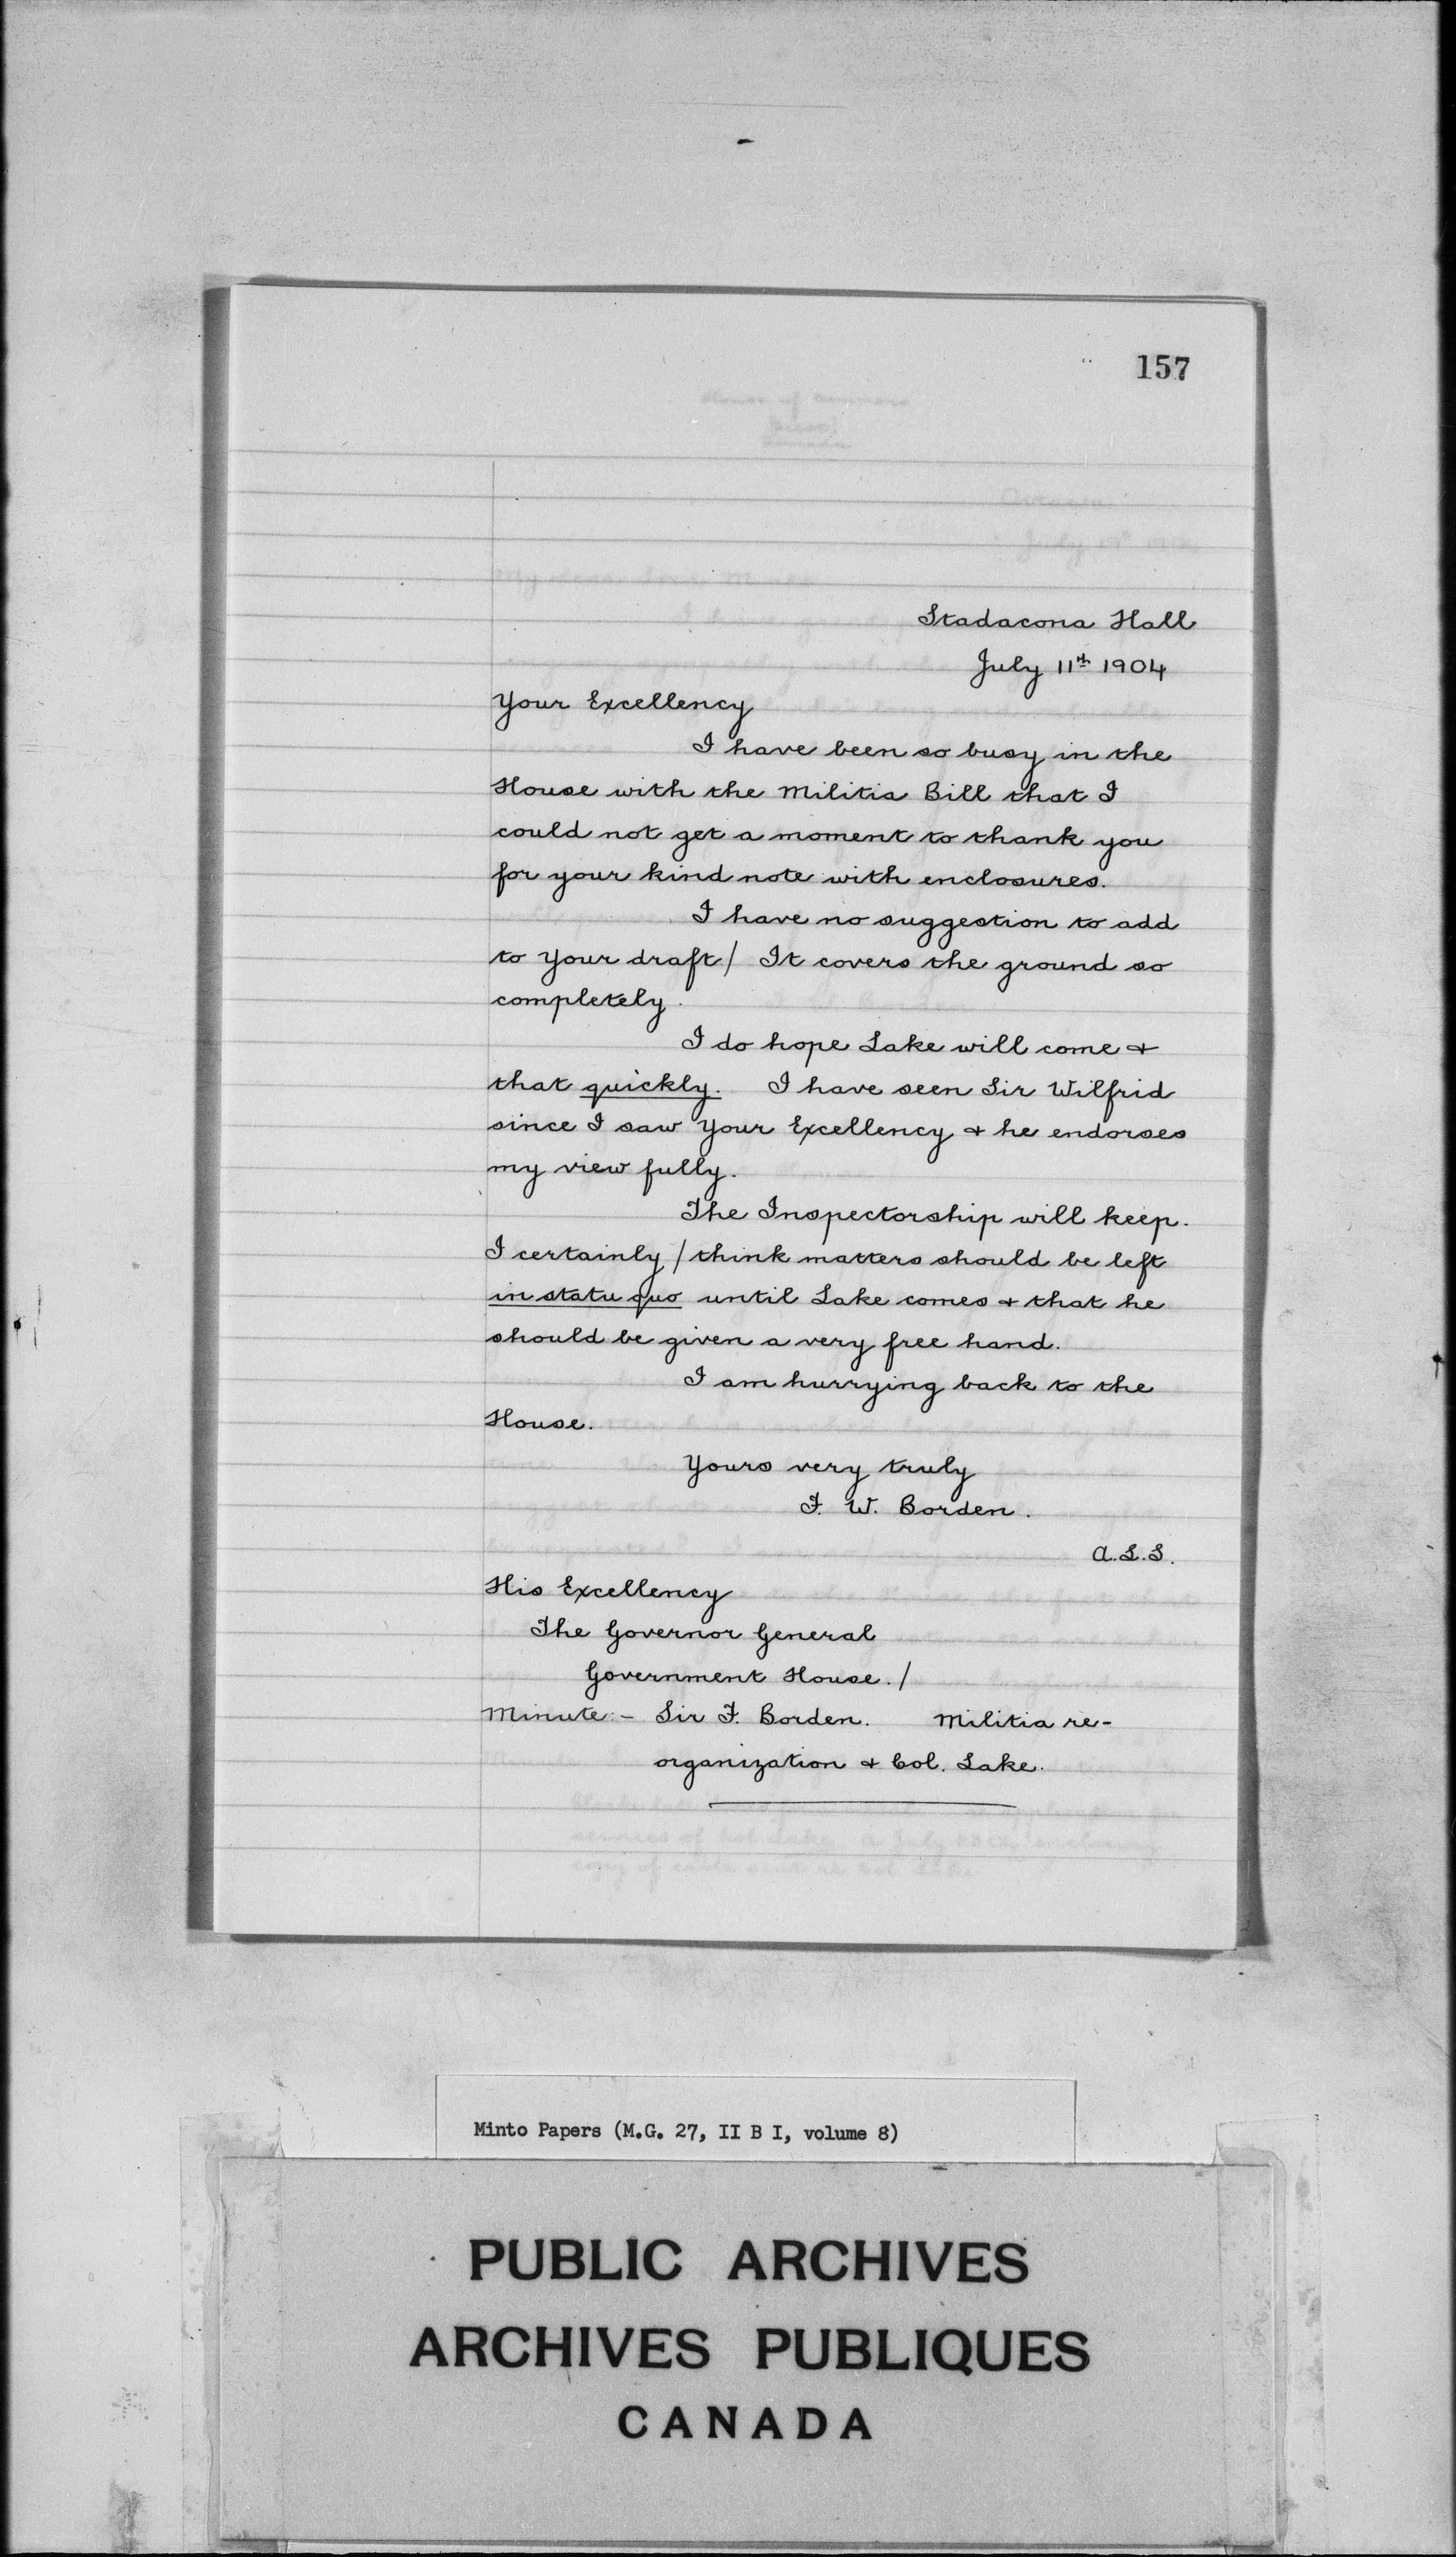 157
Stadacona Hall
July 11th 1904
Your Excellency
I have been so busy in the
House with the Militia Bill that I
could not get a moment to thank you
for your kind note with enclosures.
I have no suggestion to add
to Your draft / It covers the ground so
completely.
I do hope Lake will come &
that quickly. I have seen Sir Wilfrid
since I saw Your Excellency & he endorses
my view fully.
The Inspectorship will keep.
I certainly / think matters should be left
in statu quo until Lake comes & that he
should be given a very free hand.
I am hurrying back to the
House.
Yours very truly
F. W. Borden.
A.L.S.
His Excellency
The Governor General
Government House. /
Minute:- Sir F. Borden. Militia re-
organization & Col. Lake.
Minto Papers (M.G. 27, II B I, volume 8)
PUBLIC ARCHIVES
ARCHIVES PUBLIQUES
CANADA